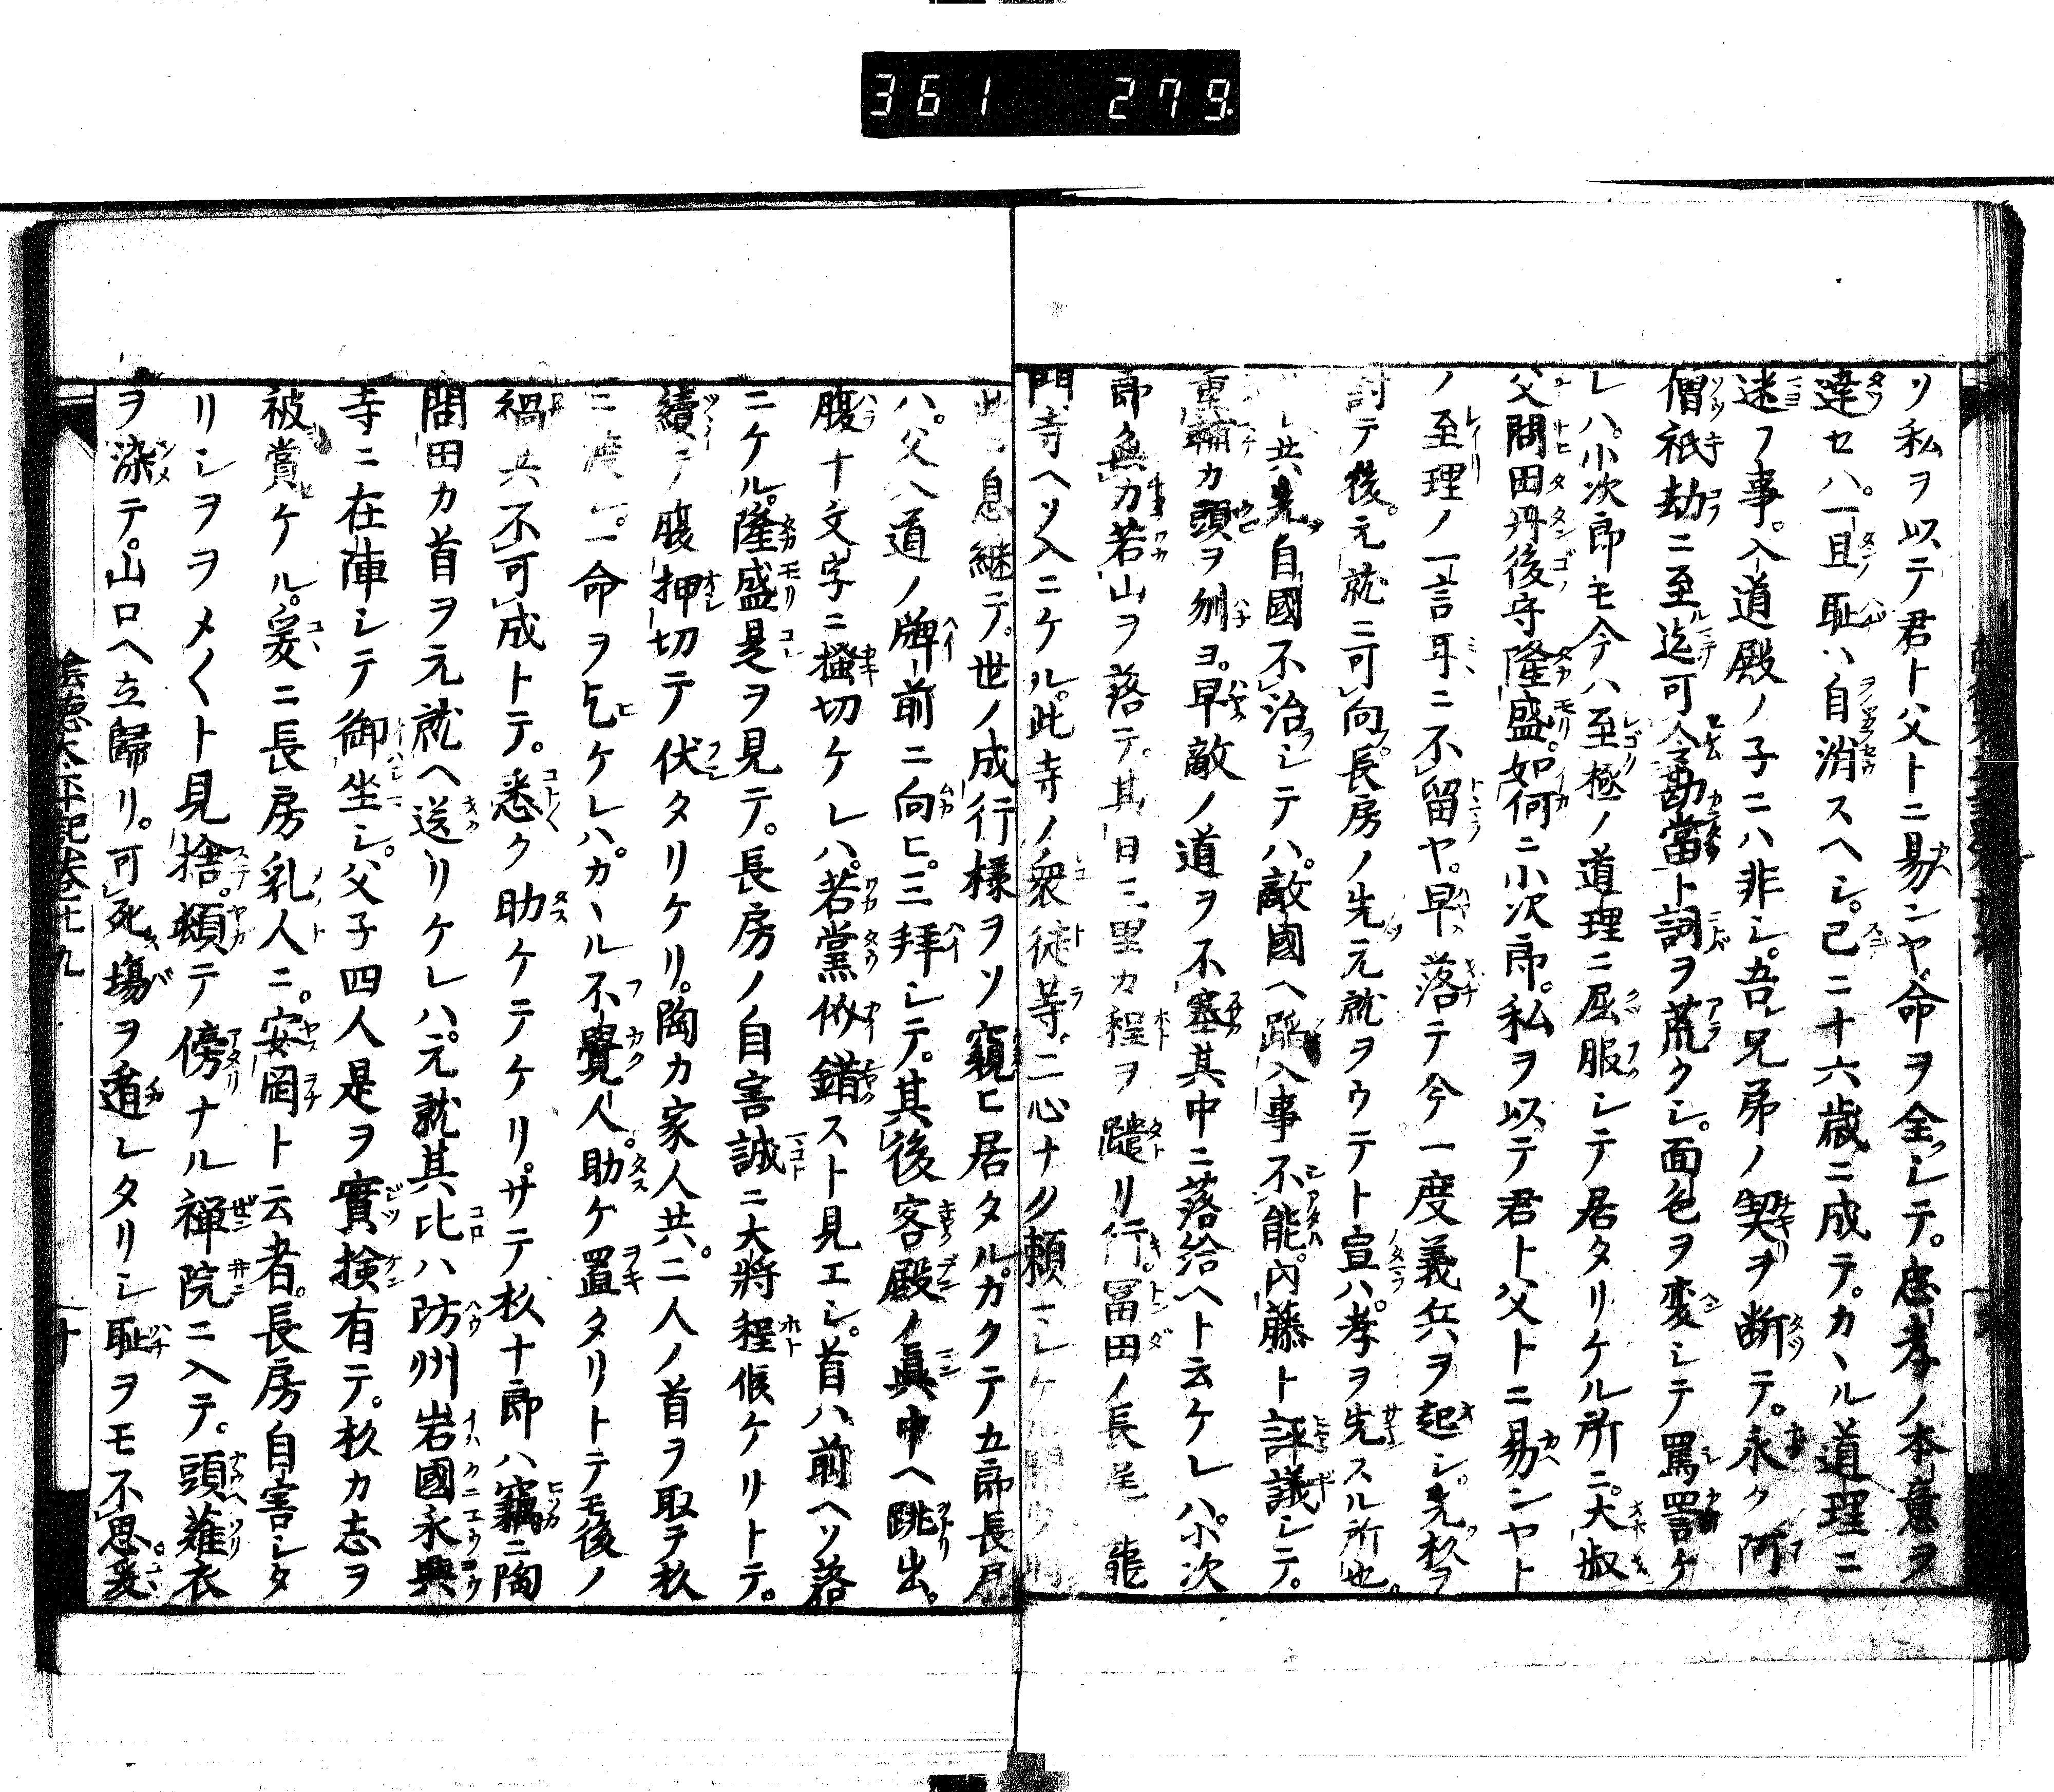 361 279
ソ私ヲ以テ君ト父トニ易ンヤ命ヲ全シテ。忠孝ノ本意ヲ
達セハ。一旦恥ハ自消スヘシ。已ニ十六歳ニ成テ。カヽル道理ニ
迷フ事。入道殿ノ子ニハ非シ。吾レ兄弟ノ契ヲ断テ。永ク阿
僧祇劫ニ至迄可令勘當ト詞ヲ荒クシ。面色ヲ変シテ罵詈ケ
レハ。小次郎モ今ハ至極ノ道理ニ屈服シテ居タリケル所ニ。大叔
父問田丹後守隆盛。如何ニ小次郎。私ヲ以テ君ト父トニ易ンヤト
ノ至理ノ一言耳ニ不留ヤ。早落テ今一度義兵ヲ起シ。先杉ヲ
討テ後。元就ニ可向。長房ノ先元就ヲウテト宣ハ。孝ヲ先スル所也。
レ共先自國不治シテハ。敵國ヘ蹈入事不能。内藤ト評議シテ。
重輔カ頭ヲ刎ヨ。早敵ノ道ヲ不塞其中ニ落給ヘト云ケレハ。小次
郎無力若山ヲ落テ。其日三里カ程ヲ蹥リ行。冨田ノ長尾龍
門寺ヘソ入ニケル。此寺ノ衆徒等。二心ナク頼
息継テ。世ノ成行様ヲソ窺ヒ居タルカクテ五郎長房
ハ。父入道ノ牌前ニ向ヒ。三拜シテ。其後客殿ノ眞中ヘ跳出。
腹十文字ニ掻切ケレハ。若黨介錯スト見エシ。首ハ前ヘソ落
ニケル。隆盛是ヲ見テ。長房ノ自害誠ニ大將程候ケリトテ。
續テ腹押切テ伏タリケリ。陶カ家人共。二人ノ首ヲ取テ杉
ニ渡シ。一命ヲ乞ケレハ。カヽル不覺人。助ケ置タリトテモ後ノ
禍共不可成トテ。悉ク助ケテケリ。サテ杉十郎ハ竊ニ陶
問田カ首ヲ元就ヘ送リケレハ。元就其比ハ防州岩國永興
寺ニ在陣シテ御坐シ。父子四人是ヲ實検有テ。杉カ志ヲ
被賞ケル。爰ニ長房乳人ニ。安岡ト云者。長房自害シタ
リシヲヲメ〱ト見捨。頓テ傍ナル禅院ニ入テ。頭薙衣
ヲ染テ。山口ヘ立歸リ。可死場ヲ遁レタリシ恥ヲモ不思爰
陰徳太平記巻廿九
十